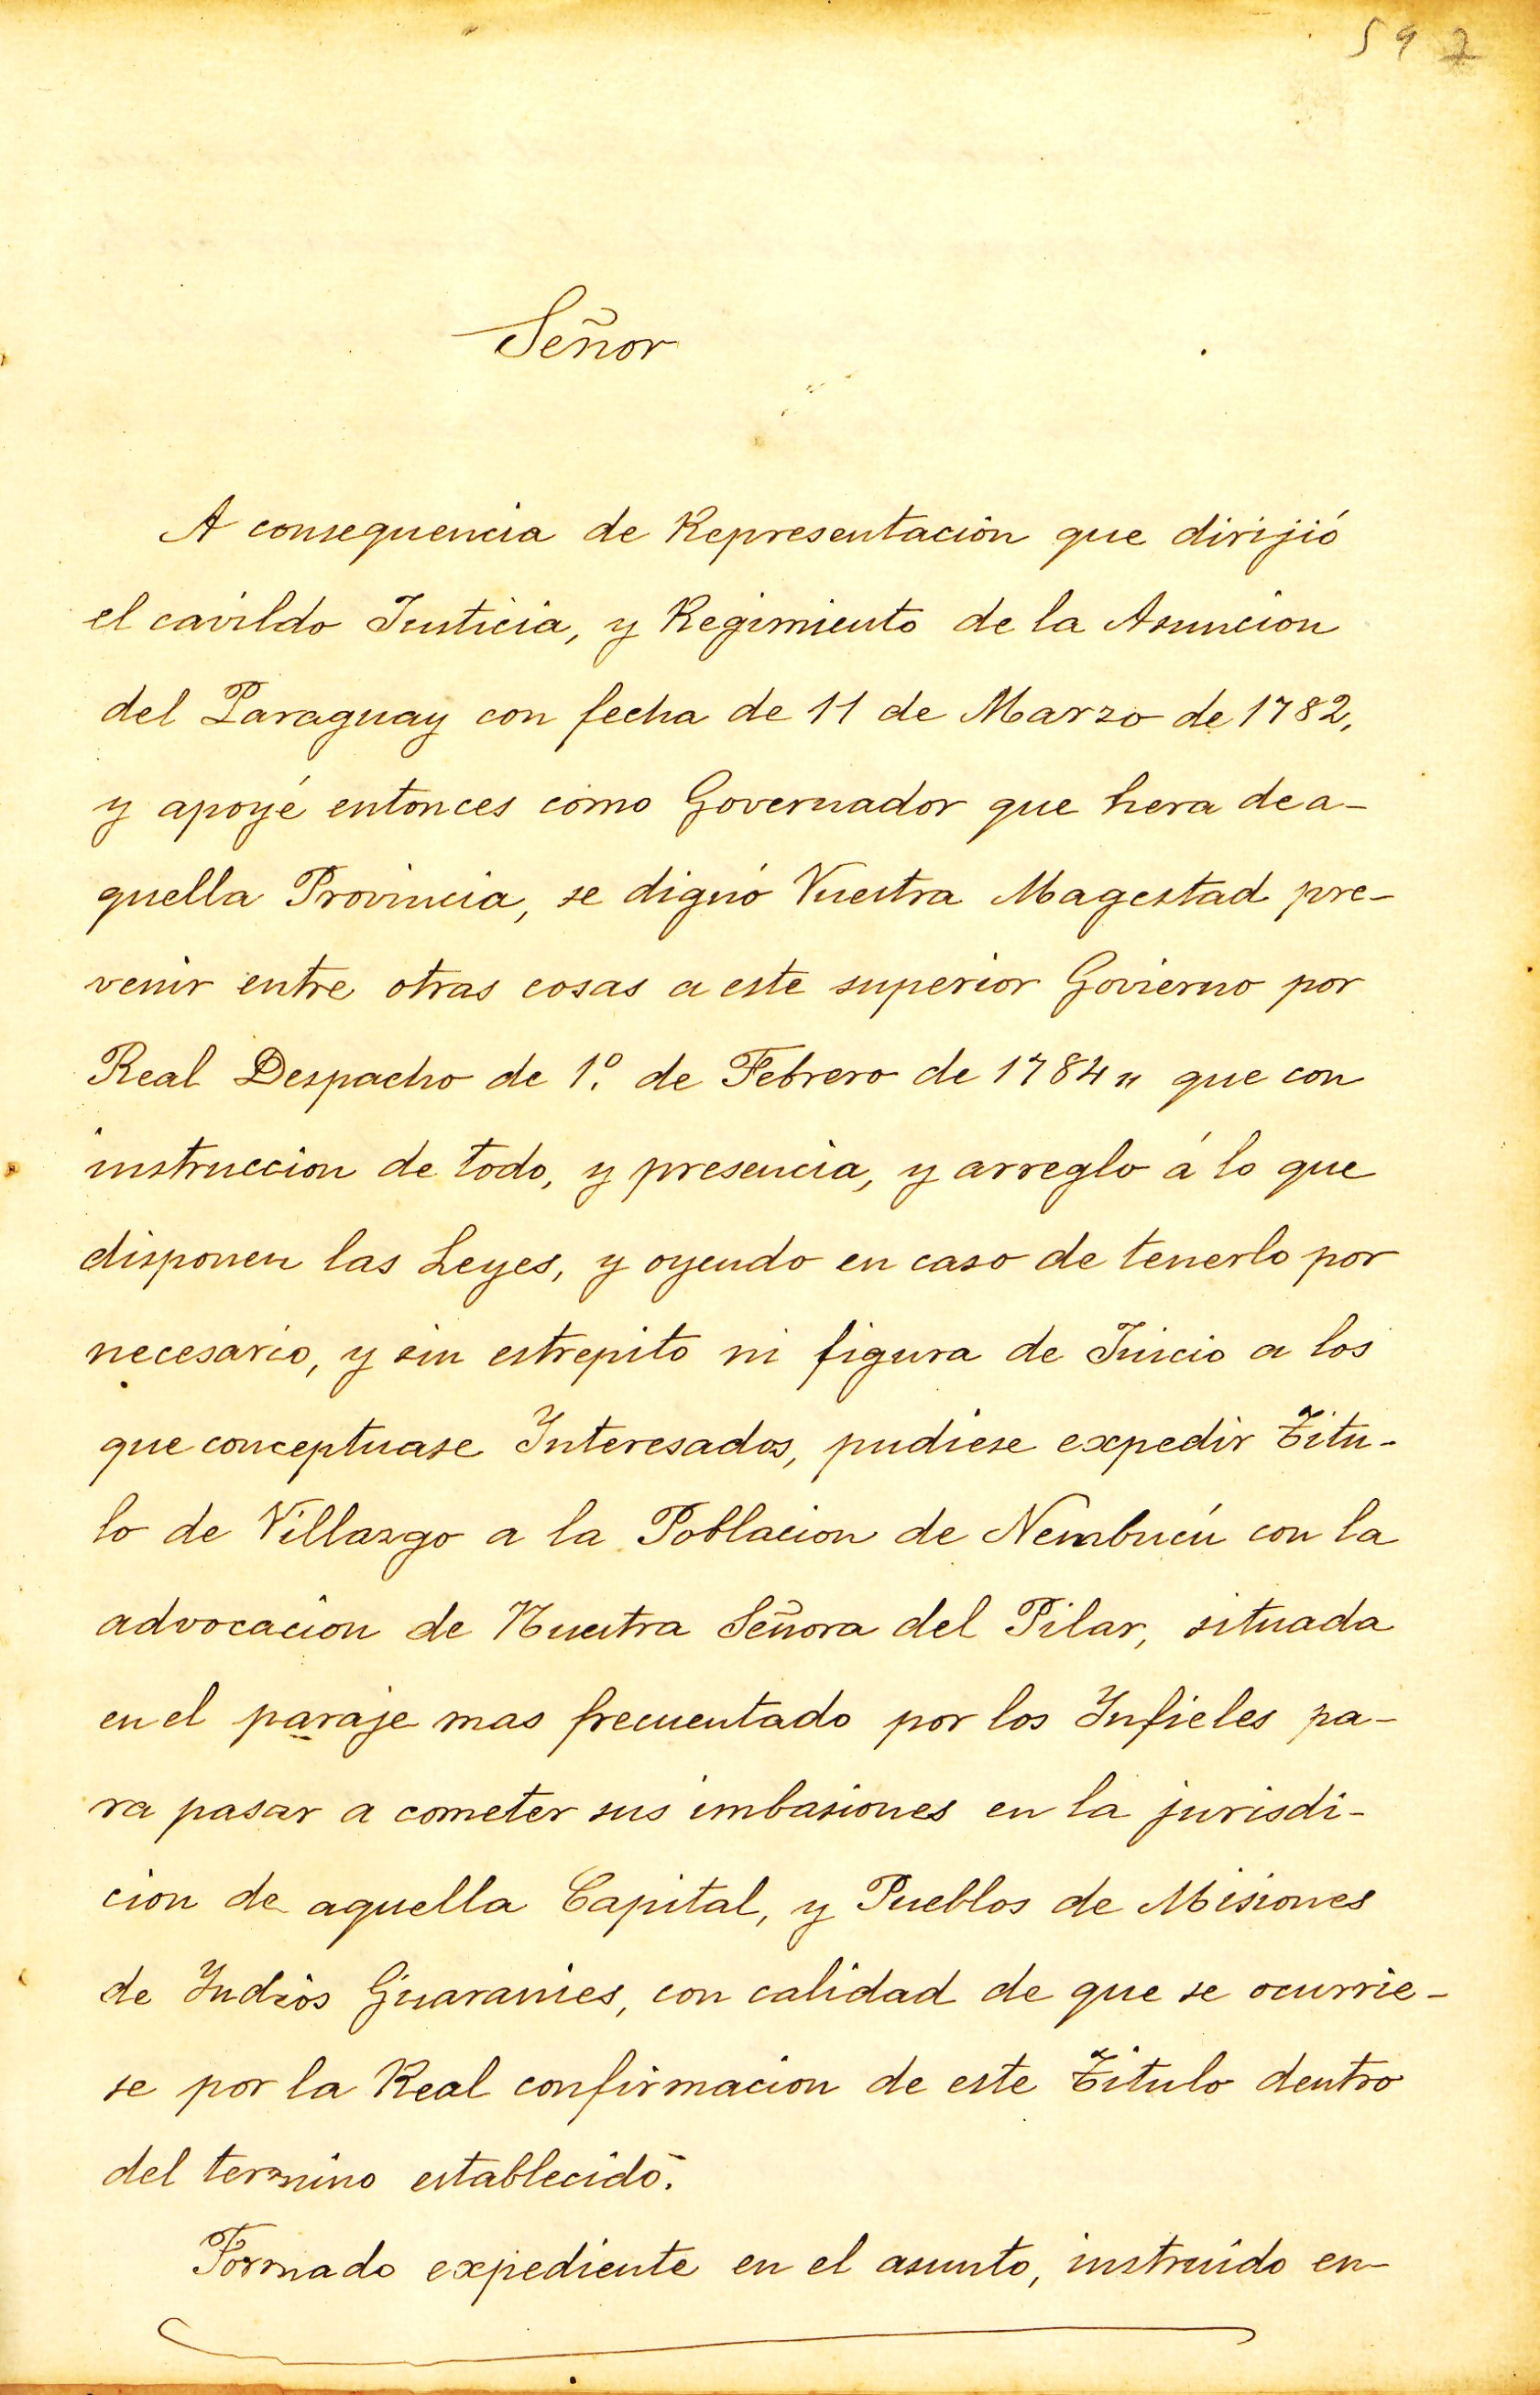 592
Señor
A consequencia de Representación que dirijió
el cavildo Justicia, y Regimiento de la Asuncion
del Paraguay con fecha de 11 de Marzo de 1782,
y apoyé entonces como Governador que hera de a-
quella Provincia, se dignó Vuestra Magestad pre-
venir entre otras cosas a este superior Govierno por
Real Despacho de 1º. de Febrero de 1784 " que con
instruccion de todo, y presencia, y arreglo á lo que
disponen las Leyes, y oyendo en caso de tenerlo por
necesario, y sin estrepito ni figura de Juicio a los
que conceptuase Interesados, pudiese expedir Titu-
lo de Villazgo a la Poblacion de Nembucú con la
advocacion de Nuestra Señora del Pilar, situada
en el paraje mas frecuentado por los Infieles pa-
ra pasar a cometer sus imbasiones en la jurisdi-
cion de aquella Capital, y Pueblos de Misiones
de Indios Guaranies, con calidad de que se ocurrie-
se por la Real confirmacion de este Titulo dentro
del termino establecido.
Formado expediente en el asunto, instruido en-